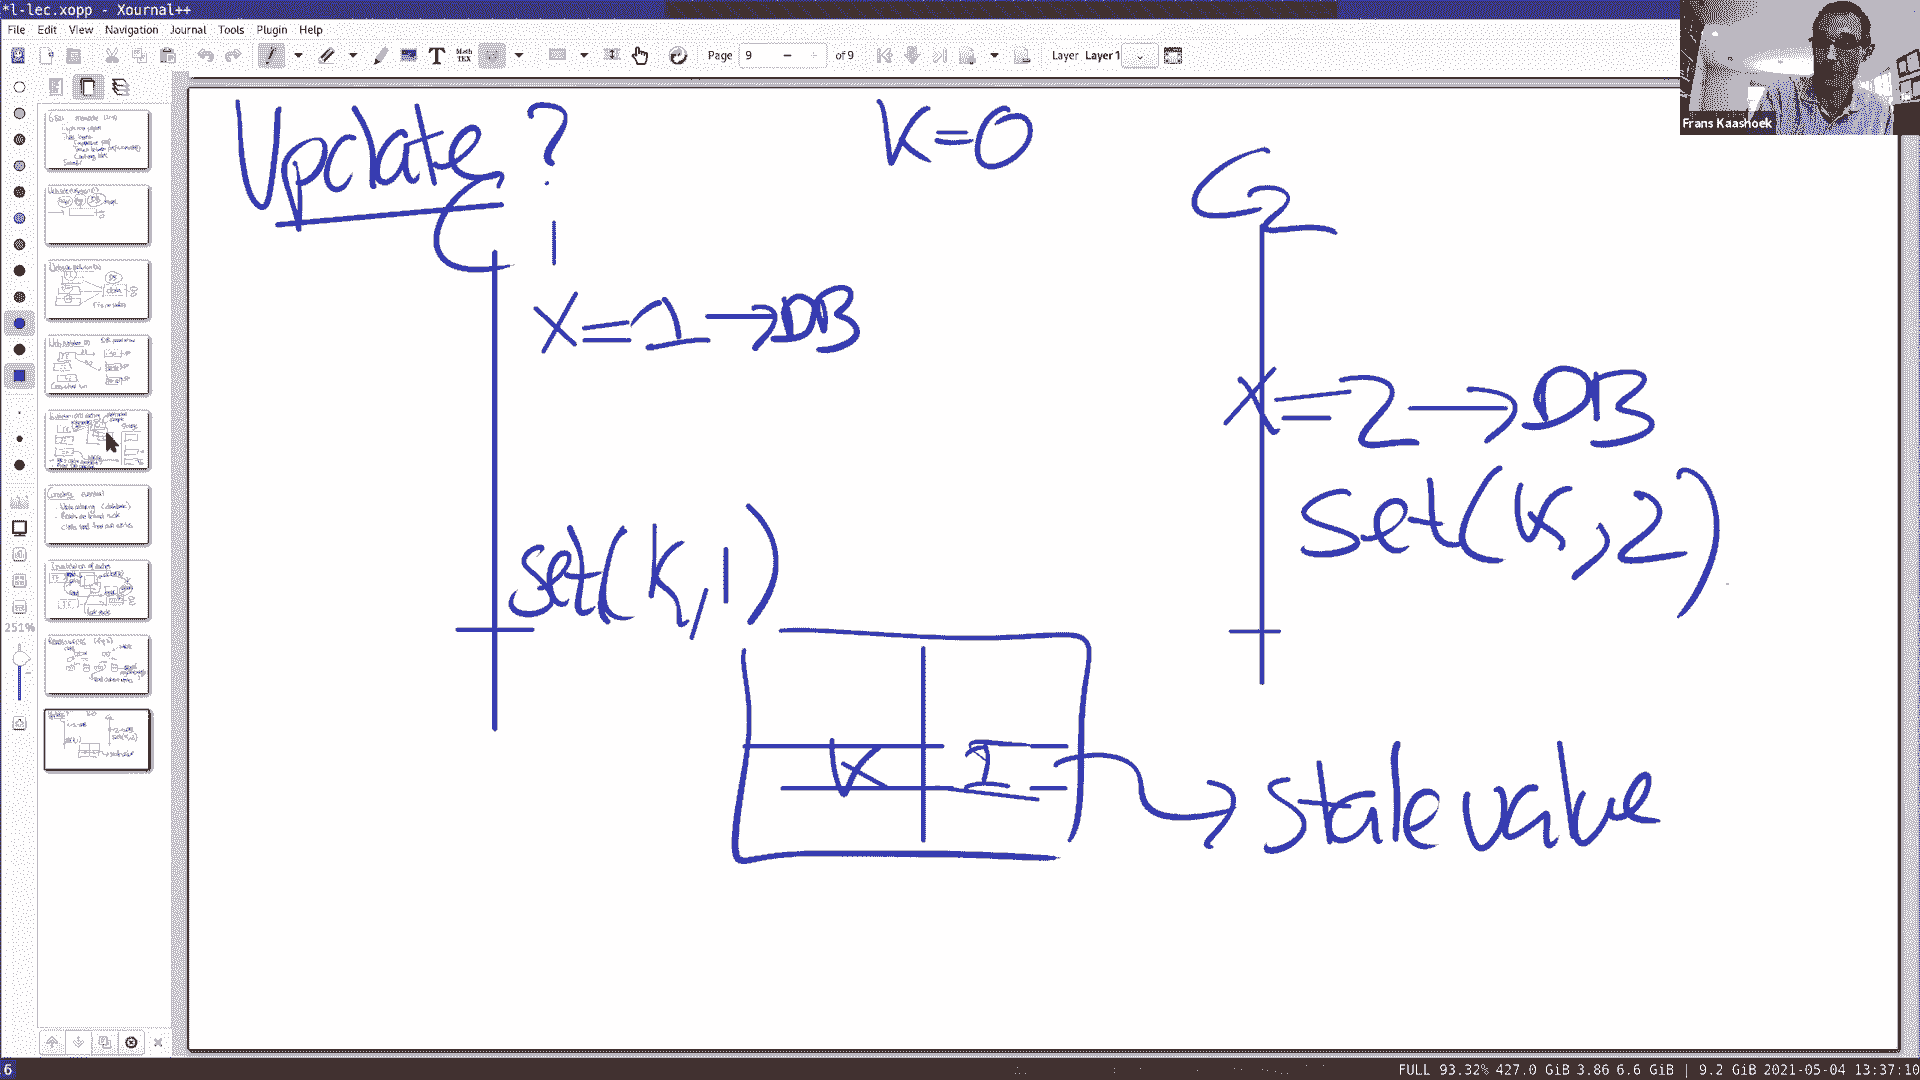 *l-lec.xopp - Xournal++
File Edit View Navigation Journal Tools Plugin Help
T Math TEX Page 9 of 9 Layer Layer 1
Frans Kaashoek
Update?
K=0
C1
C2
X=1→DB
X=2→DB
set(K,2)
set(K,1)
K 1
→ stale value
251%
6
FULL 93.32% 427.0 GiB 3.86 6.6 GiB | 9.2 GiB 2021-05-04 13:37:10